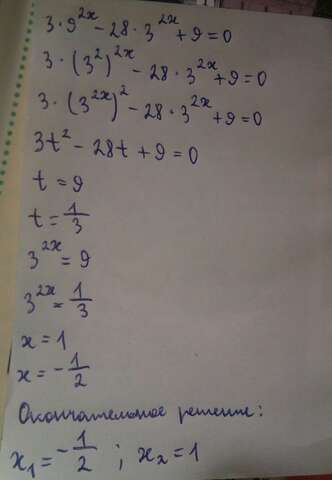 3 · 9^{2x} - 28 · 3^{2x} + 9 = 0
3 · (3^2)^{2x} - 28 · 3^{2x} + 9 = 0
3 · (3^{2x})^2 - 28 · 3^{2x} + 9 = 0
3t^2 - 28t + 9 = 0
t = 9
t = \frac{1}{3}
3^{2x} = 9
3^{2x} = \frac{1}{3}
x = 1
x = -\frac{1}{2}
Окончательное решение:
x_1 = -\frac{1}{2} ; x_2 = 1